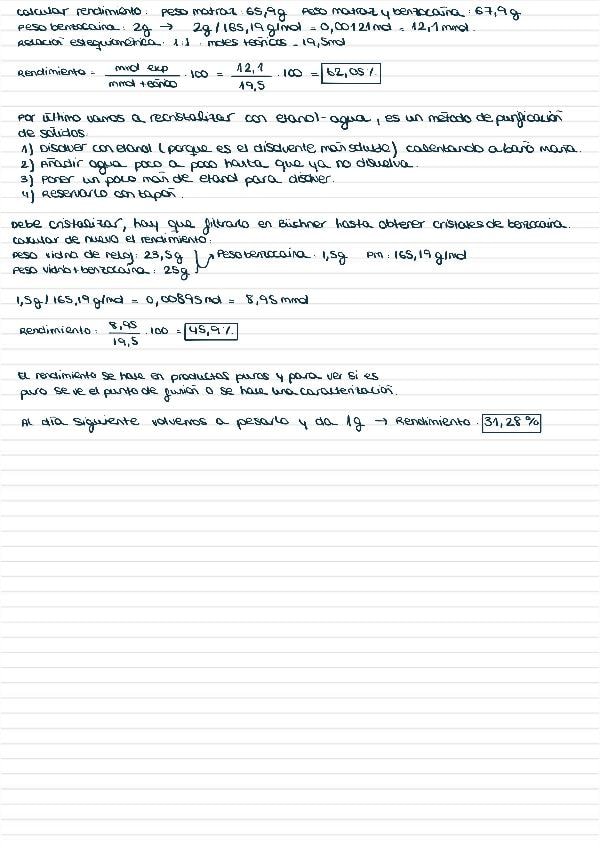 calcular rendimiento: Peso matraz: 65,9g Peso matraz y benzocaína: 67,9g
Peso benzocaína: 2g → 2g/165,19g/mol = 0,00121mol = 12,1 mmol.
Relación estequiométrica 1:1 moles teóricos = 19,5mol
Rendimiento = mmol exp / mmol teórico · 100 = 12,1 / 19,5 · 100 = 62,05%
Por último vamos a recristalizar con etanol-agua, es un método de purificación
de sólidos.
1) Disolver con etanol (porque es el disolvente más soluble) calentando a baño maría.
2) Añadir agua poco a poco hasta que ya no disuelva.
3) Poner un poco más de etanol para disolver.
4) Reservarlo con tapón.
Debe cristalizar, hay que filtrarlo en Büshner hasta obtener cristales de benzocaína.
Calcular de nuevo el rendimiento:
Peso vidrio de reloj: 23,5g Peso benzocaína: 1,5g Pm: 165,19g/mol
Peso vidrio+benzocaína: 25g
1,5g/165,19g/mol = 0,00895mol = 8,95 mmol
Rendimiento: 8,95 / 19,5 · 100 = 45,9%
El rendimiento se hace en productos puros y para ver si es
puro se ve el punto de fusión o se hace una caracterización.
Al día siguiente volvemos a pesarlo y da 1g → Rendimiento: 31,28%